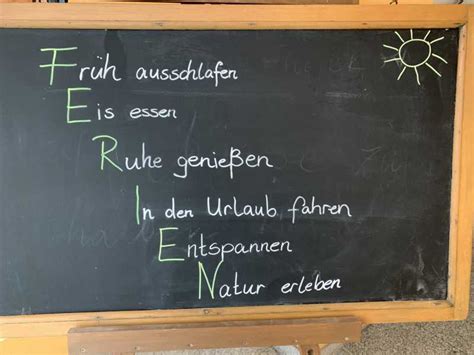 Früh ausschlafen
Eis essen
Ruhe genießen
In den Urlaub fahren
Entspannen
Natur erleben